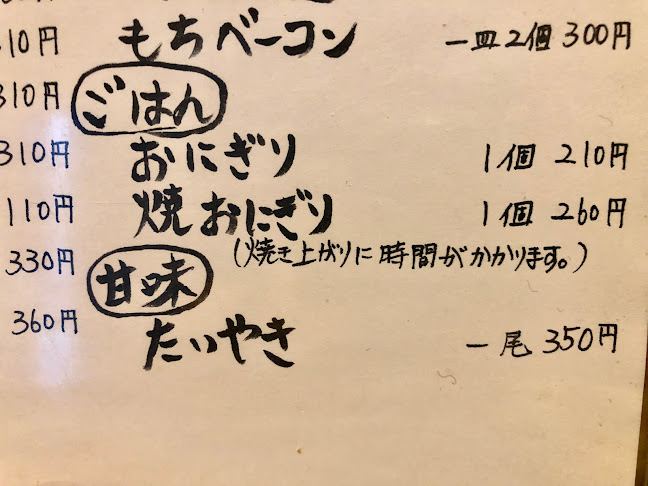 310円
もちベーコン 一皿2個 300円
310円
ごはん
310円
おにぎり 1個 210円
110円
焼おにぎり 1個 260円
(焼き上がりに時間がかかります。)
330円
甘味
360円
たいやき 一尾 350円